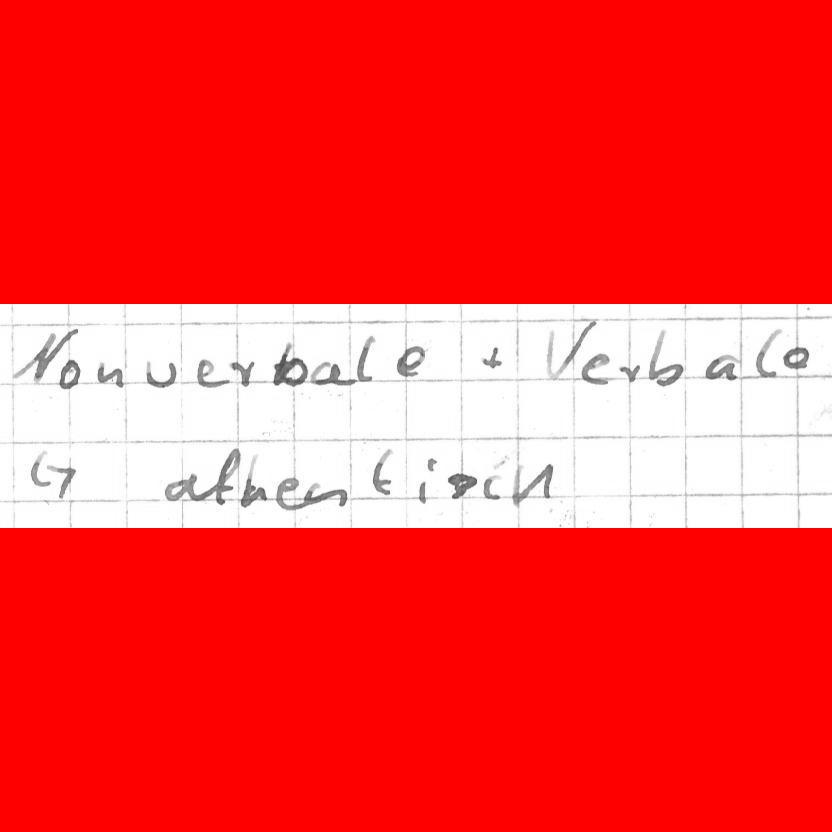 Nonverbale + Verbale
↳ athentisch